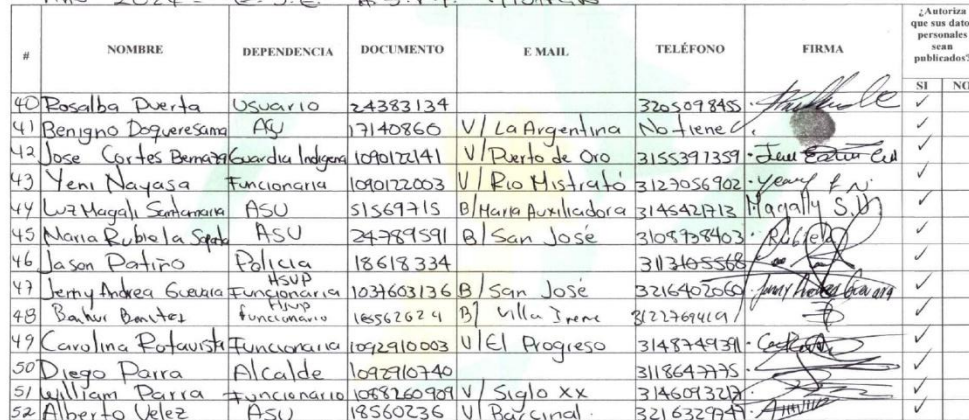 Año 2024 - E.S.E. H.S.V.P. Mistrató
# NOMBRE DEPENDENCIA DOCUMENTO E MAIL TELÉFONO FIRMA ¿Autoriza que sus datos personales sean publicados?
SI NO
40 Rosalba Puerta Usuario 24383134 3205098455 ✓
41 Benigno Doqueresama ASU 17140860 V/ La Argentina No tiene ✓
42 Jose Cortes Guardia Indigena 1090122141 V/ Puerto de Oro 3155397359 ✓
43 Yeni Nayasa Funcionaria 1090122003 V/ Rio Mistrató 3127056902 ✓
44 Luz Magali Santamaria ASU 51569715 B/ Maria Auxiliadora 3146421713 Magally S. ✓
45 Maria Rubiela ASU 24789591 B/ San José 3108738403 Rubiela ✓
46 Jason Patiño Policia 18618334 ✓
47 Jenny Andrea Guevara HSVP Funcionaria 1037603136 B/ San José 3216402060 Jenny Andrea Guevara ✓
48 Benites HSVP funcionario B/ Villa Irene ✓
49 Carolina Funcionaria 1092910003 V/ El Progreso 3148749391 ✓
50 Diego Parra Alcalde 1092910740 3118647775 ✓
51 William Parra Funcionario 1088260909 V/ Siglo XX 3146093217 ✓
52 Alberto Velez ASU 18560236 V/ Barcinal. ✓